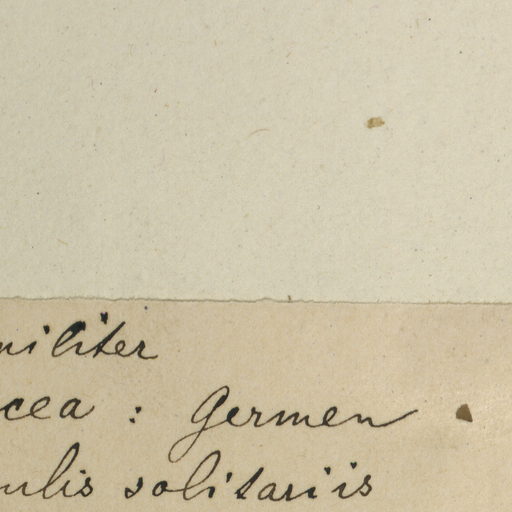 militer
cea : Germen
ulis solitariis